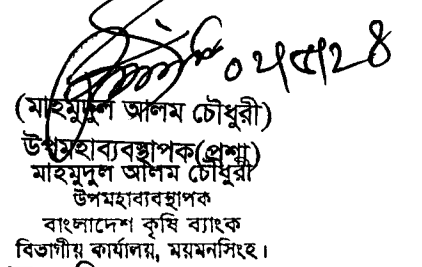 ০২/৫/২৪
(মাহমুদুল আলম চৌধুরী)
উপমহাব্যবস্থাপক(প্রশা)
মাহমুদুল আলম চৌধুরী
উপমহাব্যবস্থাপক
বাংলাদেশ কৃষি ব্যাংক
বিভাগীয় কার্যালয়, ময়মনসিংহ।